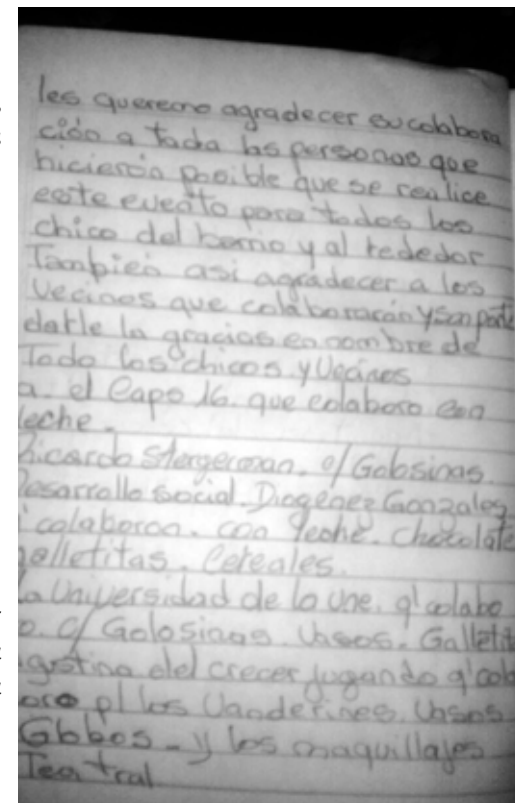 les queremo agradecer su colabora
ción a toda las personas que
hicierón posible que se realice
este evento para todos los
chico del barrio y al rededor
Tambien asi agradecer a los
Vecinos que colaborarón y son parte
darle la gracias en nombre de
Todo los chicos y Vecinos
a. el Capo 16. que colaboro con
leche.
Ricardo c/ Golosinas.
Desarrollo social. Diogenez Gonzales
colaboron. con leche. chocolate
galletitas. Cereales.
La Universidad de la Une. q' colabo
o. c/ Golosinas Vasos. Galletit
gostina del crecer jugando q' col
oro p/ los Vanderines. Vasos
Globos - y los maquillajes
Teatral